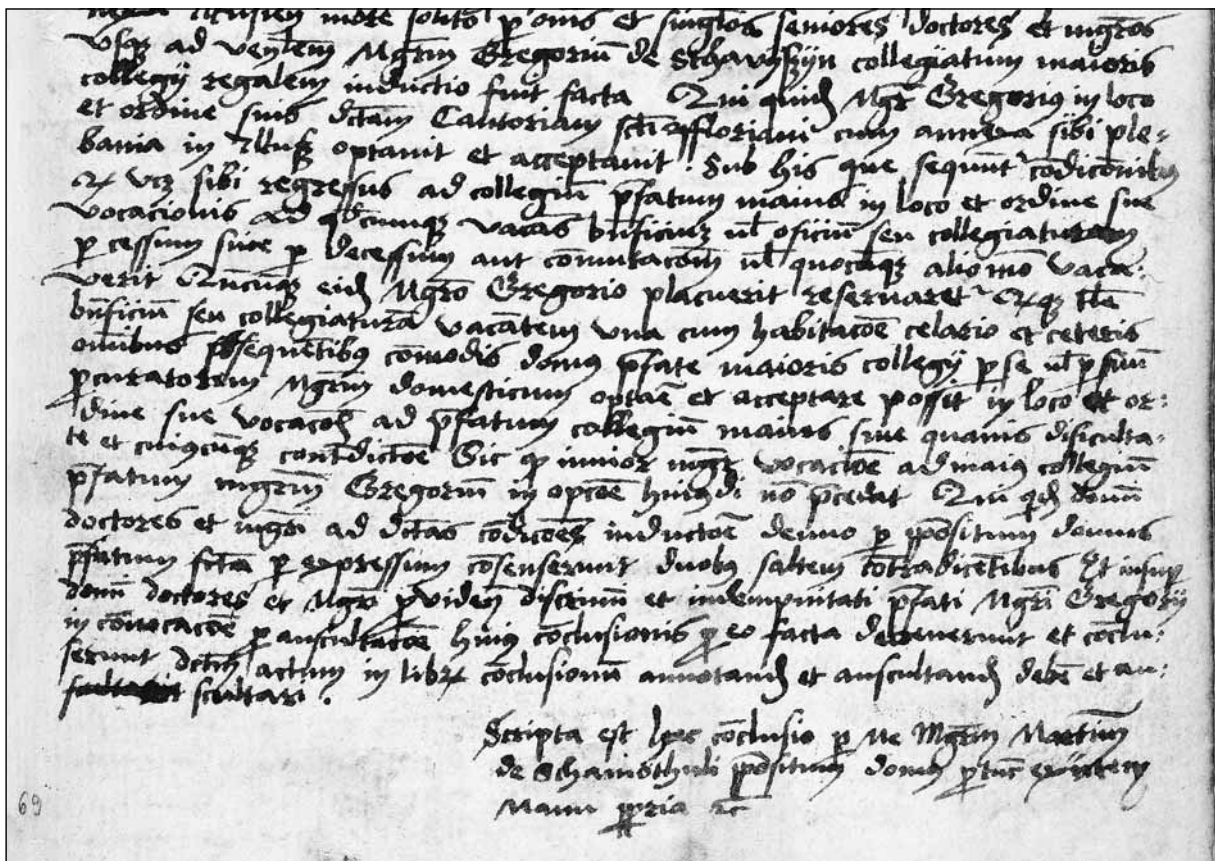 more solito p omis et singlos seniores doctores et mgros
Usqz ad venlem Mgrm Gregoriu de Schawyszyn collegiatum maioris
collegy regalem inductio fuit facta Qui quid Mgr Gregorius in loco
et ordine suis dctam Cantoriam scti ffloriani cum annexa sibi ple=
bania in Ilkusz optavit et acceptavit. Sub his que sequunt condiconibus
vcz sibi regressus ad collegiu pfatum maius in loco et ordine sue
vocacionis ad qdcumqz vacas bnficium ul oficiu seu collegiaturam
p cessum sive p decessum aut comutacom ul quocuqz alio mo vaca.
verit Qucuqz eid Mgro Gregorio placuerit reservaret
bnficiu seu collegiatura vacatem una cum habitacoe celario et ceteris
omibus sbsequetibus comodis domus pfate maioris collegy p se ul p suu
pcuratorem Mgrm domesticum optae et acceptare possit in loco et or:
dine sue vocacois ad pfatum collegium maius sine quavis dificulta.
te et cuiuscuqz contdictoe Sic qp iunior mgr vocacioe ad maius collegiu
pfatum mgrm Gregoriu in opcoe huiusdi no pcedat Qui qd domi
doctores et mgri ad dctas codicoes inductoe denuo p ppositum domus
pfatum fcta p expressum cosenserunt duobus saltem cotradicetibus Et insup
domi doctores et Mgri pviden discrimi et indempnitati pfati Mgri Gregorii
in convocacoe p auscultacoe huius coclusionis p eo facta devenerunt et coclu:
serunt actum in libr coclusionu annotand et auscultand debe et au:
scultari.
Scripta est hec coclusio p me Mgrm Martinu
de Schamothuli ppositum domus p tuc existem
Manu ppria rc
69